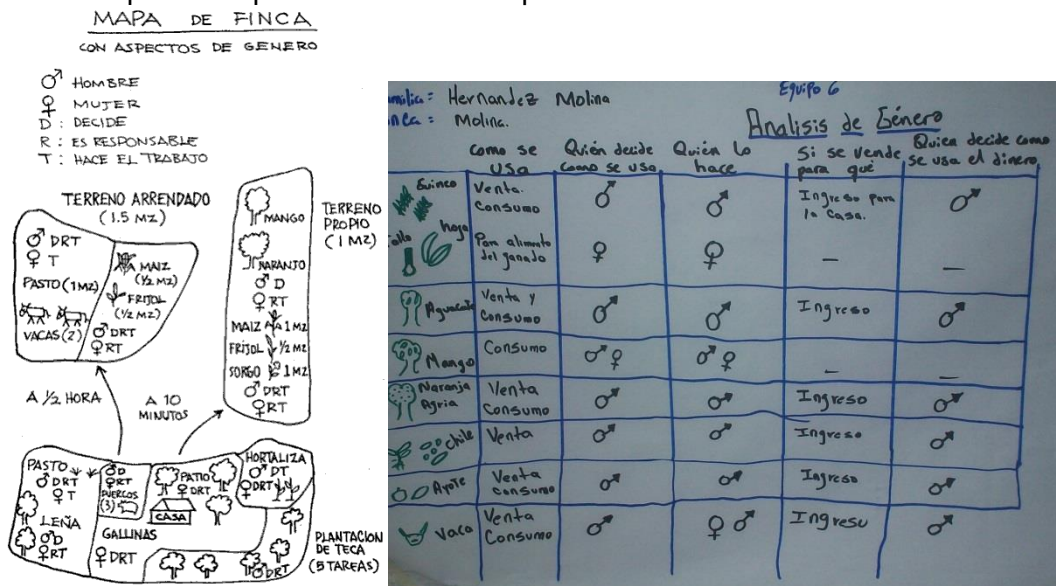 MAPA DE FINCA
CON ASPECTOS DE GENERO
♂ HOMBRE
♀ MUJER
D : DECIDE
R : ES RESPONSABLE
T : HACE EL TRABAJO
TERRENO ARRENDADO
(1.5 MZ)
♂ DRT
♀ T
PASTO (1MZ)
VACAS (2)
MAIZ
(½ MZ)
FRIJOL
(½ MZ)
♂ DRT
♀ RT
MANGO
NARANJO
♂ D
♀ RT
MAIZ 1 MZ
FRIJOL ½ MZ
SORGO 1 MZ
♂ DRT
♀ RT
TERRENO
PROPIO
(1 MZ)
A ½ HORA
A 10
MINUTOS
PASTO
♂ DRT
♀ T
LEÑA
♂ D
♀ RT
♂ D
♀ RT
PUERCOS
(3)
GALLINAS
♀ DRT
PATIO
♀ DRT
CASA
HORTALIZA
♂ DT
♀ DRT
♂ DRT
PLANTACION
DE TECA
(5 TAREAS)
Hernandez Molina
Molina.
Equipo 6
Analisis de Género
como se usa
Quién decide como se usa
Quién lo hace
Si se vende para qué
Quien decide como se usa el dinero
Guineo
Venta. Consumo
♂
♂
Ingreso para la Casa.
♂
hoja
Para alimento del ganado
♀
♀
–
–
Aguacate
Venta y Consumo
♂
♂
Ingreso
♂
Mango
Consumo
♂ ♀
♂ ♀
–
–
Naranja Agria
Venta Consumo
♂
♂
Ingreso
♂
chile
Venta
♂
♂
Ingreso
♂
Ayote
Venta consumo
♂
♂
Ingreso
♂
Vaca
Venta Consumo
♂
♀ ♂
Ingreso
♂